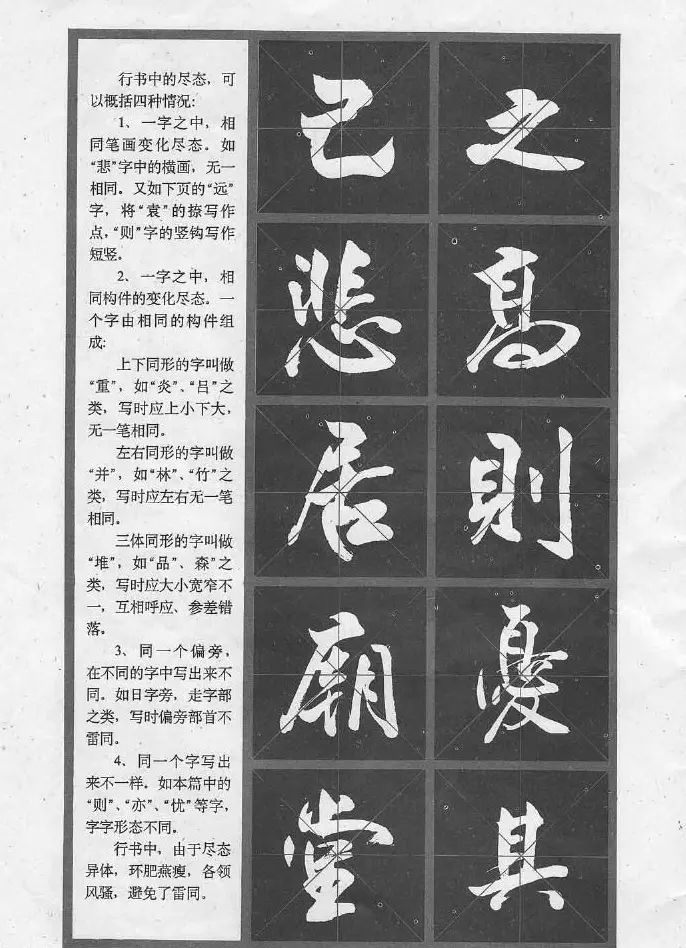 行书中的尽态，可
以概括四种情况：
1、一字之中，相
同笔画变化尽态。如
“悲”字中的横画，无一
相同。又如下页的“远”
字，将“袁”的捺写作
点，“则”字的竖钩写作
短竖。
2、一字之中，相
同构件的变化尽态。一
个字由相同的构件组
成：
上下同形的字叫做
“重”，如“炎”、“吕”之
类，写时应上小下大，
无一笔相同。
左右同形的字叫做
“并”，如“林”、“竹”之
类，写时应左右无一笔
相同。
三体同形的字叫做
“堆”，如“品”、森”之
类，写时应大小宽窄不
一，互相呼应、参差错
落。
3、同一个偏旁，
在不同的字中写出来不
同。如日字旁，走字部
之类，写时偏旁部首不
雷同。
4、同一个字写出
来不一样。如本篇中的
“则”、“亦”、“忧”等字，
字字形态不同。
行书中，由于尽态
异体，环肥燕瘦，各领
风骚，避免了雷同。
己
悲
居
廟
堂
之
高
則
憂
其